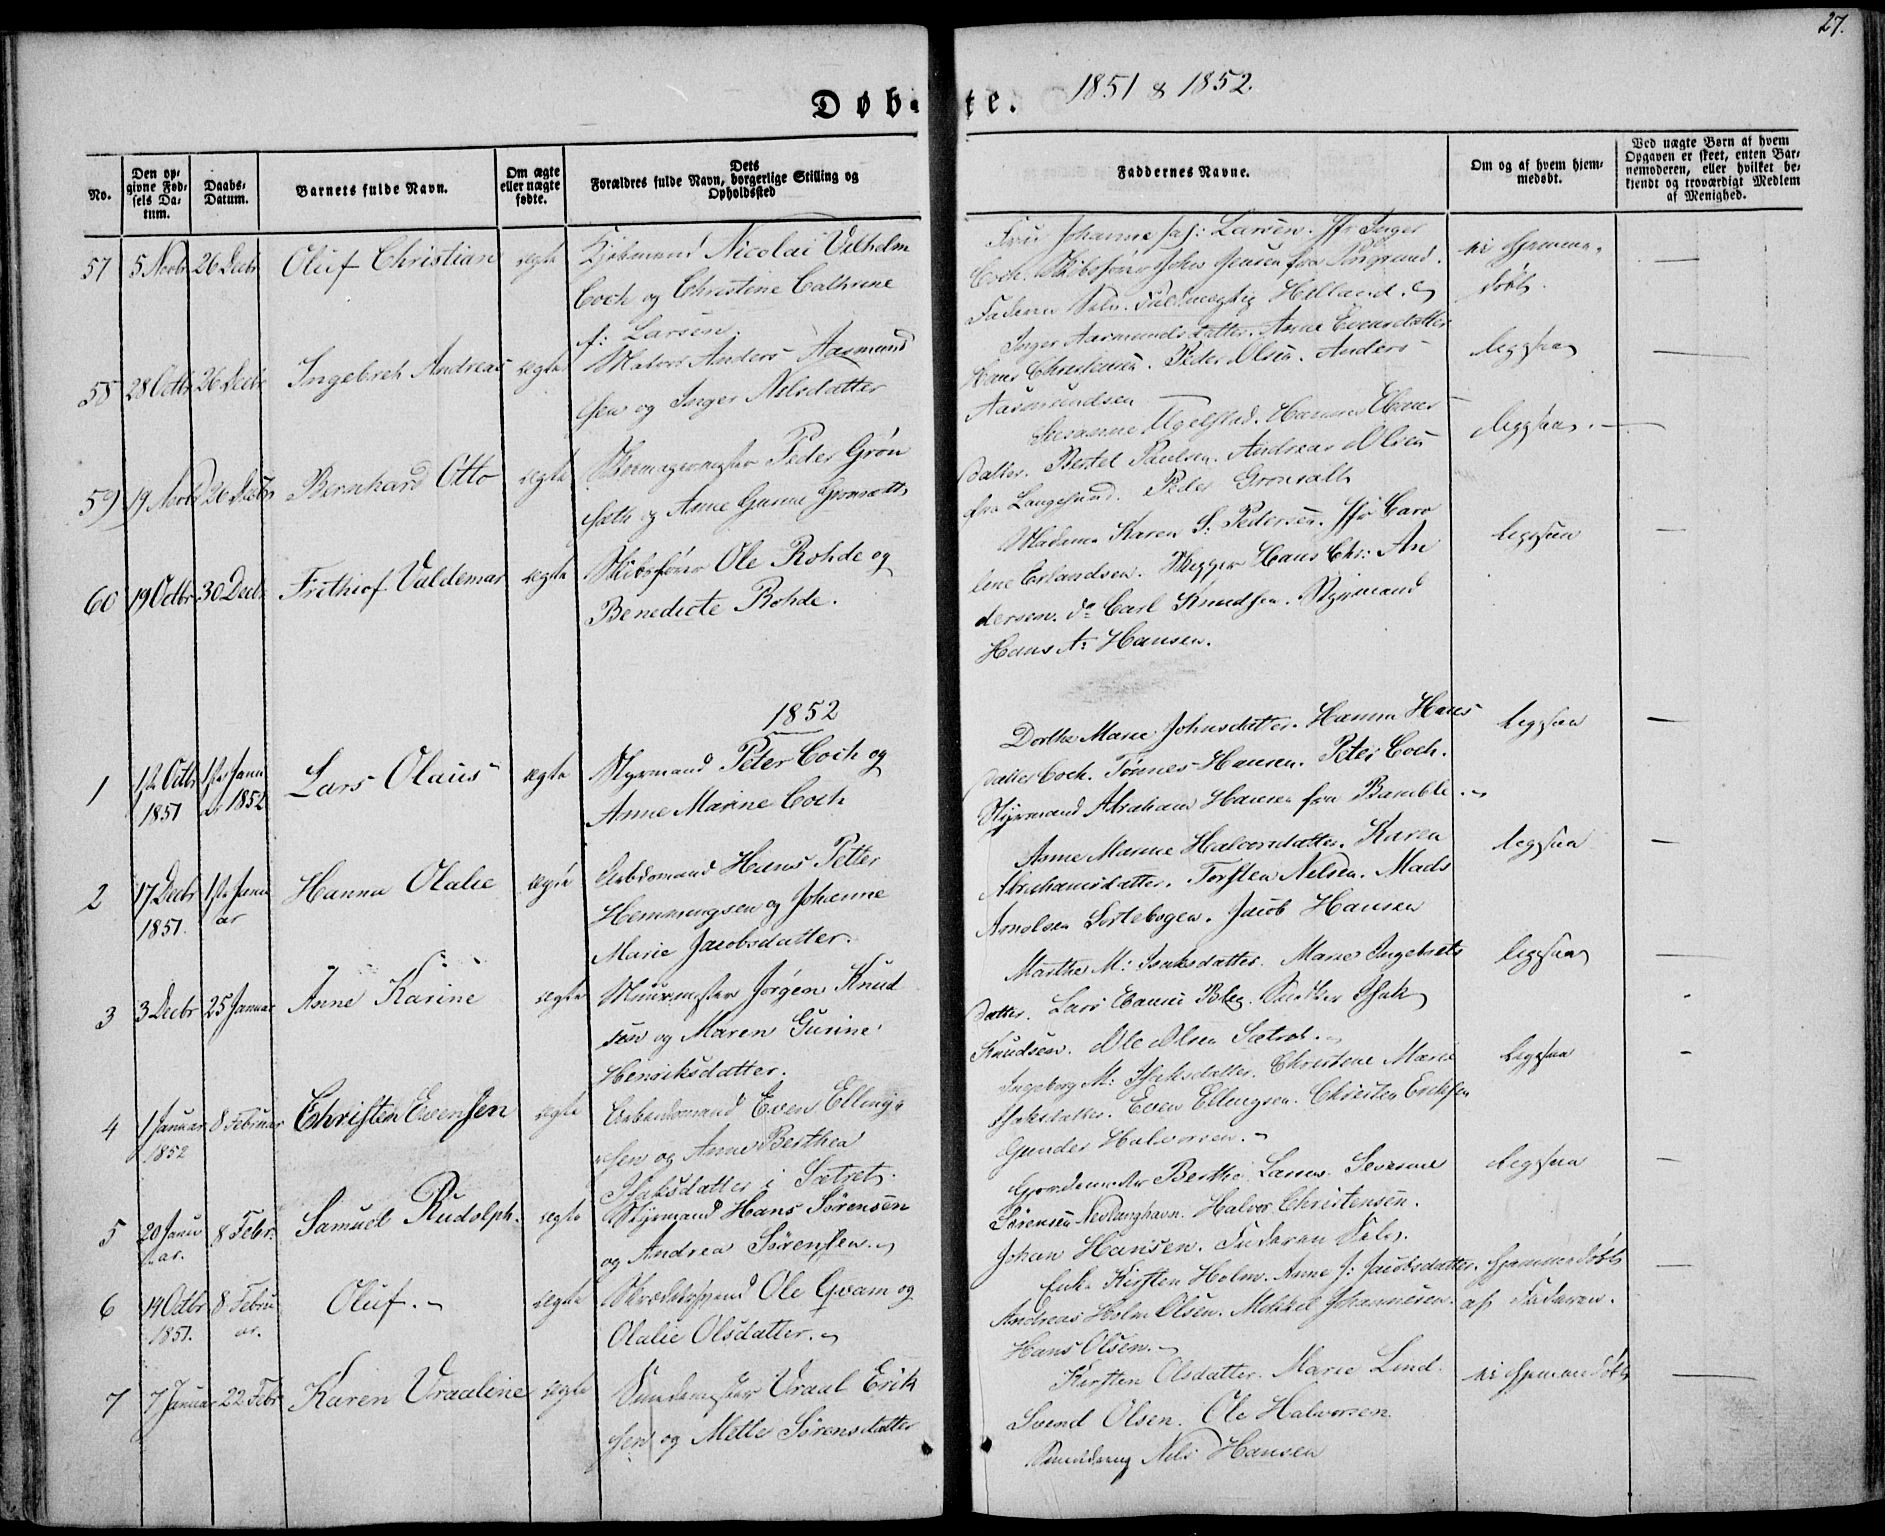 27.
Døbte.
1851 & 1852.
No.
Den opgivne Fødsels Datum.
Daabs-Datum.
Barnets fulde Navn.
Om ægte eller uægte fødte.
Dets Forældres fulde Navn, borgerlige Stilling og Opholdssted
Faddernes Navne.
Om og af hvem hjemmedøbt.
Ved uægte Børn af hvem Opgaven er skeet, enten Barnemoderen, eller hvilket bekjendt og troværdigt Medlem af Menighed.
57 5 Novbr 26 Decbr Oluf Christian ægte Kjøbmand Nicolai Vilhelm
Coch og Christine Cathrine
f: Larsen.
Fru Johanne Larsen. Jfr Inger
Coch. Skibsfører Johs Jensen fra Porsgrund.
Faderen Selv. Fuldmægtig Helland.
ei hjemme-
døbt.
58 28 Octbr 26 Decbr Ingebreh Andreas ægte Matros Anders Aasmund
sen og Inger Nilsdatter
Inger Aasmundsdatter. Anne Evensdatter
Hans Christensen. Peder Olsen. Anders
Aasmundsen
ligesaa
59 19 Novbr 26 Decbr Bernhard Otto ægte Skomagermester Peder Grøn
sæth og Anne Gurine Grønsæth
Susanne Ugelstad. Hanna Hans
datter. Bertel Paulsen. Andreas Olsen
fra Langesund. Peder Gronsalt
ligesaa.
60 19 Octbr 30 Decbr Frithiof Valdemar ægte Skibsfører Ole Rohde og
Benedicte Rohde.
Madam Karen S: Pedersen. Jfr Caro
line Erlandsen. Skipper Hans Chr: An
dersen. do Carl Knudsen. Styrmand
Hans A: Hansen.
ligesaa
1852
1 1ste Octbr 1851 1ste Januar 1852 Lars Olaus ægte Styrmand Peter Coch og
Anne Marine Coch
Dorthe Marie Johnsdatter. Hanna Hans
datter Coch. Tønnes Hansen. Peter Coch.
Styrmand Abraham Hansen fra Bamble.
ligesaa
2 17 Decbr 1851. 1ste Januar Hanna Olalie ægte Arbdsmand Hans Petter
Hemmingsen og Johanne
Marie Jacobsdatter.
Anne Marine Halvorsdatter. Karen
Abrahamsdatter. Torsten Nilsen. Mads
Arnelsen Sortebogen. Jacob Hansen
ligesaa
3 3 Decbr 25 Januar Anne Karine ægte Muurmester Jørgen Knud
sen og Maren Gurine
Henriksdatter.
Marthe M: Isaksdatter. Maren Ingebrets
datter. Lars Hansen. Snedker Isak
Knudsen. Ole Olsen Sætret.
ligesaa
4 1 Januar 1852 8 Februar Christen Evensen ægte Arbeidsmand Even Elling-
sen og Anne Berthea
Isaksdatter i Sætret.
Ingeborg M: Isaksdatter. Christine Marie
Isaksdatter. Even Ellingsen. Christen Eriksen
Gunder Halvorsen.
ligesaa
5 20 Januar. 8 Febr. Samuel Rudolph. ægte Styrmand Hans Sørensen
og Andrea Sørensen.
Gjordemoder Berthe Larsen. Severine
Sørensen Nevlunghavn. Halvor Christensen.
Johan Hansen. Faderen Selv.
ligesaa
6 14 Octbr 1851. 8 Februar. Oluf. ægte Skrædersvend Ole Gvam og
Olalie Olsdatter.
Enke Kirsten Holm. Anne J: Jacobsdatter.
Andreas Holm Olsen. Mekkel Johannesen.
Hans Olsen.
hjemmedøbt
af Faderen.
7 7 Januar 22 Febr Karen Vraaline ægte Smedemester Vraal Erik
sen og Mette Sørensdatter
Kirsten Olsdatter. Marie Lind.
Svend Olsen. Ole Halvorsen.
Nels Hansen
ei hjemmedøbt